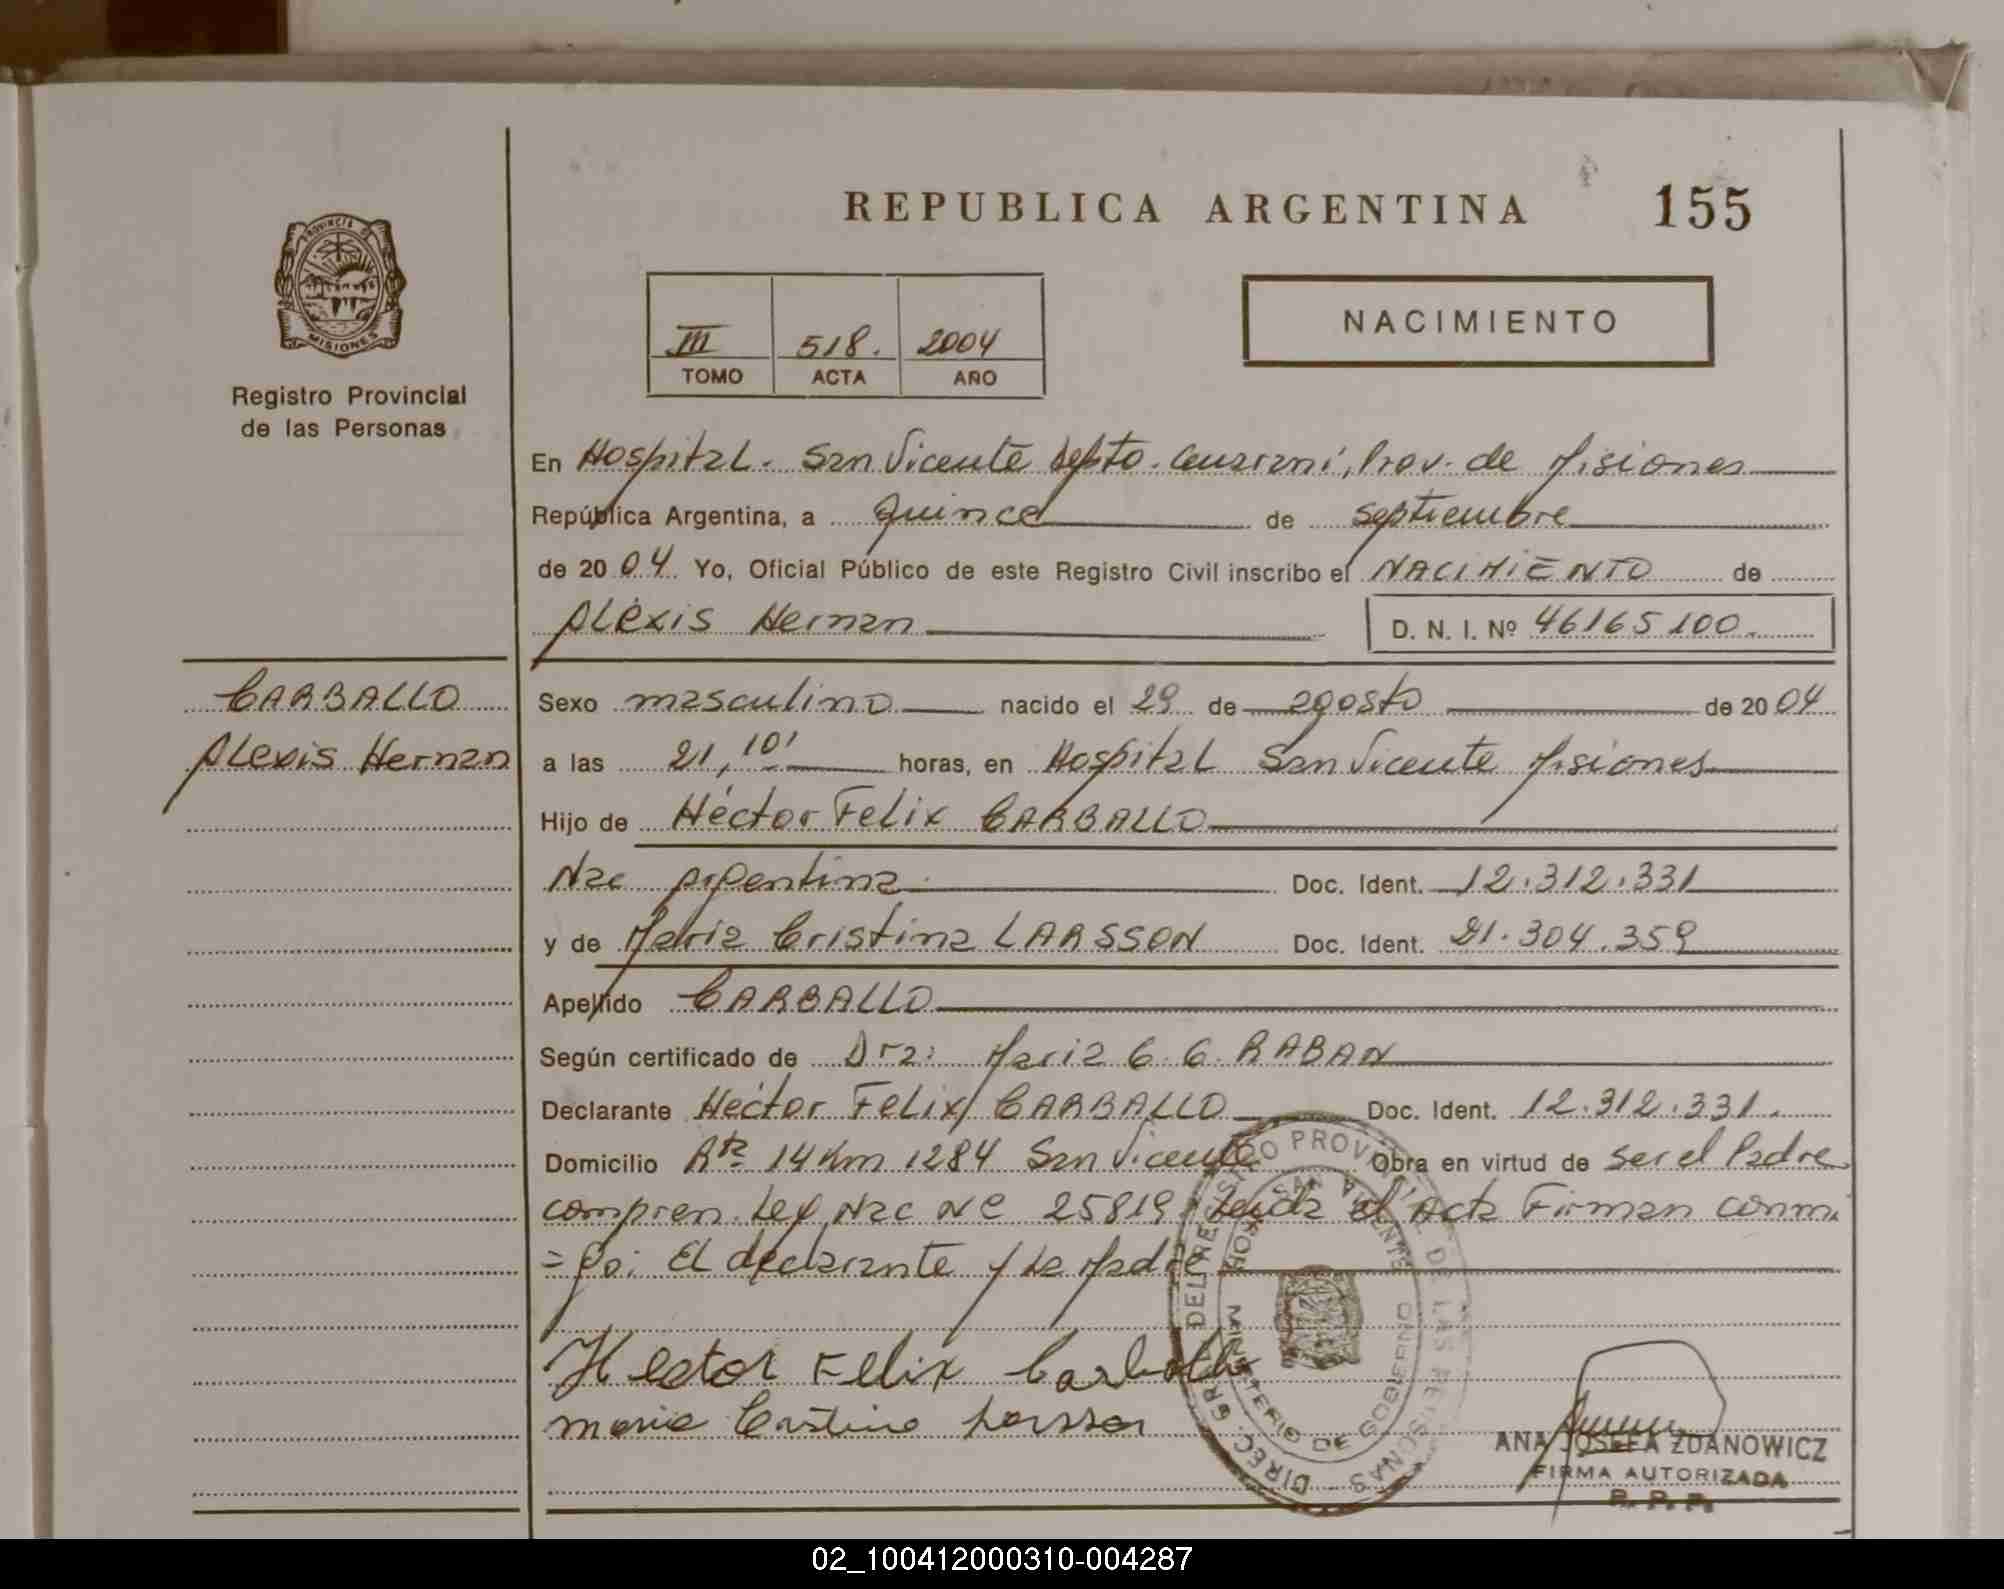 REPUBLICA ARGENTINA 155
PROVINCIA DE
MISIONES
Registro Provincial
de las Personas
III 518. 2004
TOMO ACTA AÑO
NACIMIENTO
En Hospital. San Vicente Depto. Guaraní, Prov. de Misiones
República Argentina, a quince de septiembre
de 2004. Yo, Oficial Público de este Registro Civil inscribo el NACIMIENTO de
Alexis Hernan D. N. I. Nº 46165100.
CARBALLO
Alexis Hernan
Sexo masculino nacido el 29 de agosto de 2004
a las 21,10' horas, en Hospital San Vicente Misiones
Hijo de Héctor Felix CARBALLO
Nac argentina Doc. Ident. 12.312.331
y de Maria Cristina LARSSON Doc. Ident. 21.304.359
Apellido CARBALLO
Según certificado de Dra: Maria G. G. RABAN
Declarante Héctor Felix CARBALLO Doc. Ident. 12.312.331.
Domicilio Rta 14 Km 1284 San Vicente Obra en virtud de ser el Padre
compren. Ley Nac Nº 25819 Leida el Acta Firman conmi
=go: El declarante y la Madre
Hector Felix Carballo
maria Cristina Larsson
DIREC. GRAL. DEL REGISTRO PROVINCIAL DE LAS PERSONAS
HOSP. SAN VICENTE
MINISTERIO DE GOBIERNO
ANA JOSEFA ZDANOWICZ
FIRMA AUTORIZADA
R. P. P.
02_100412000310-004287